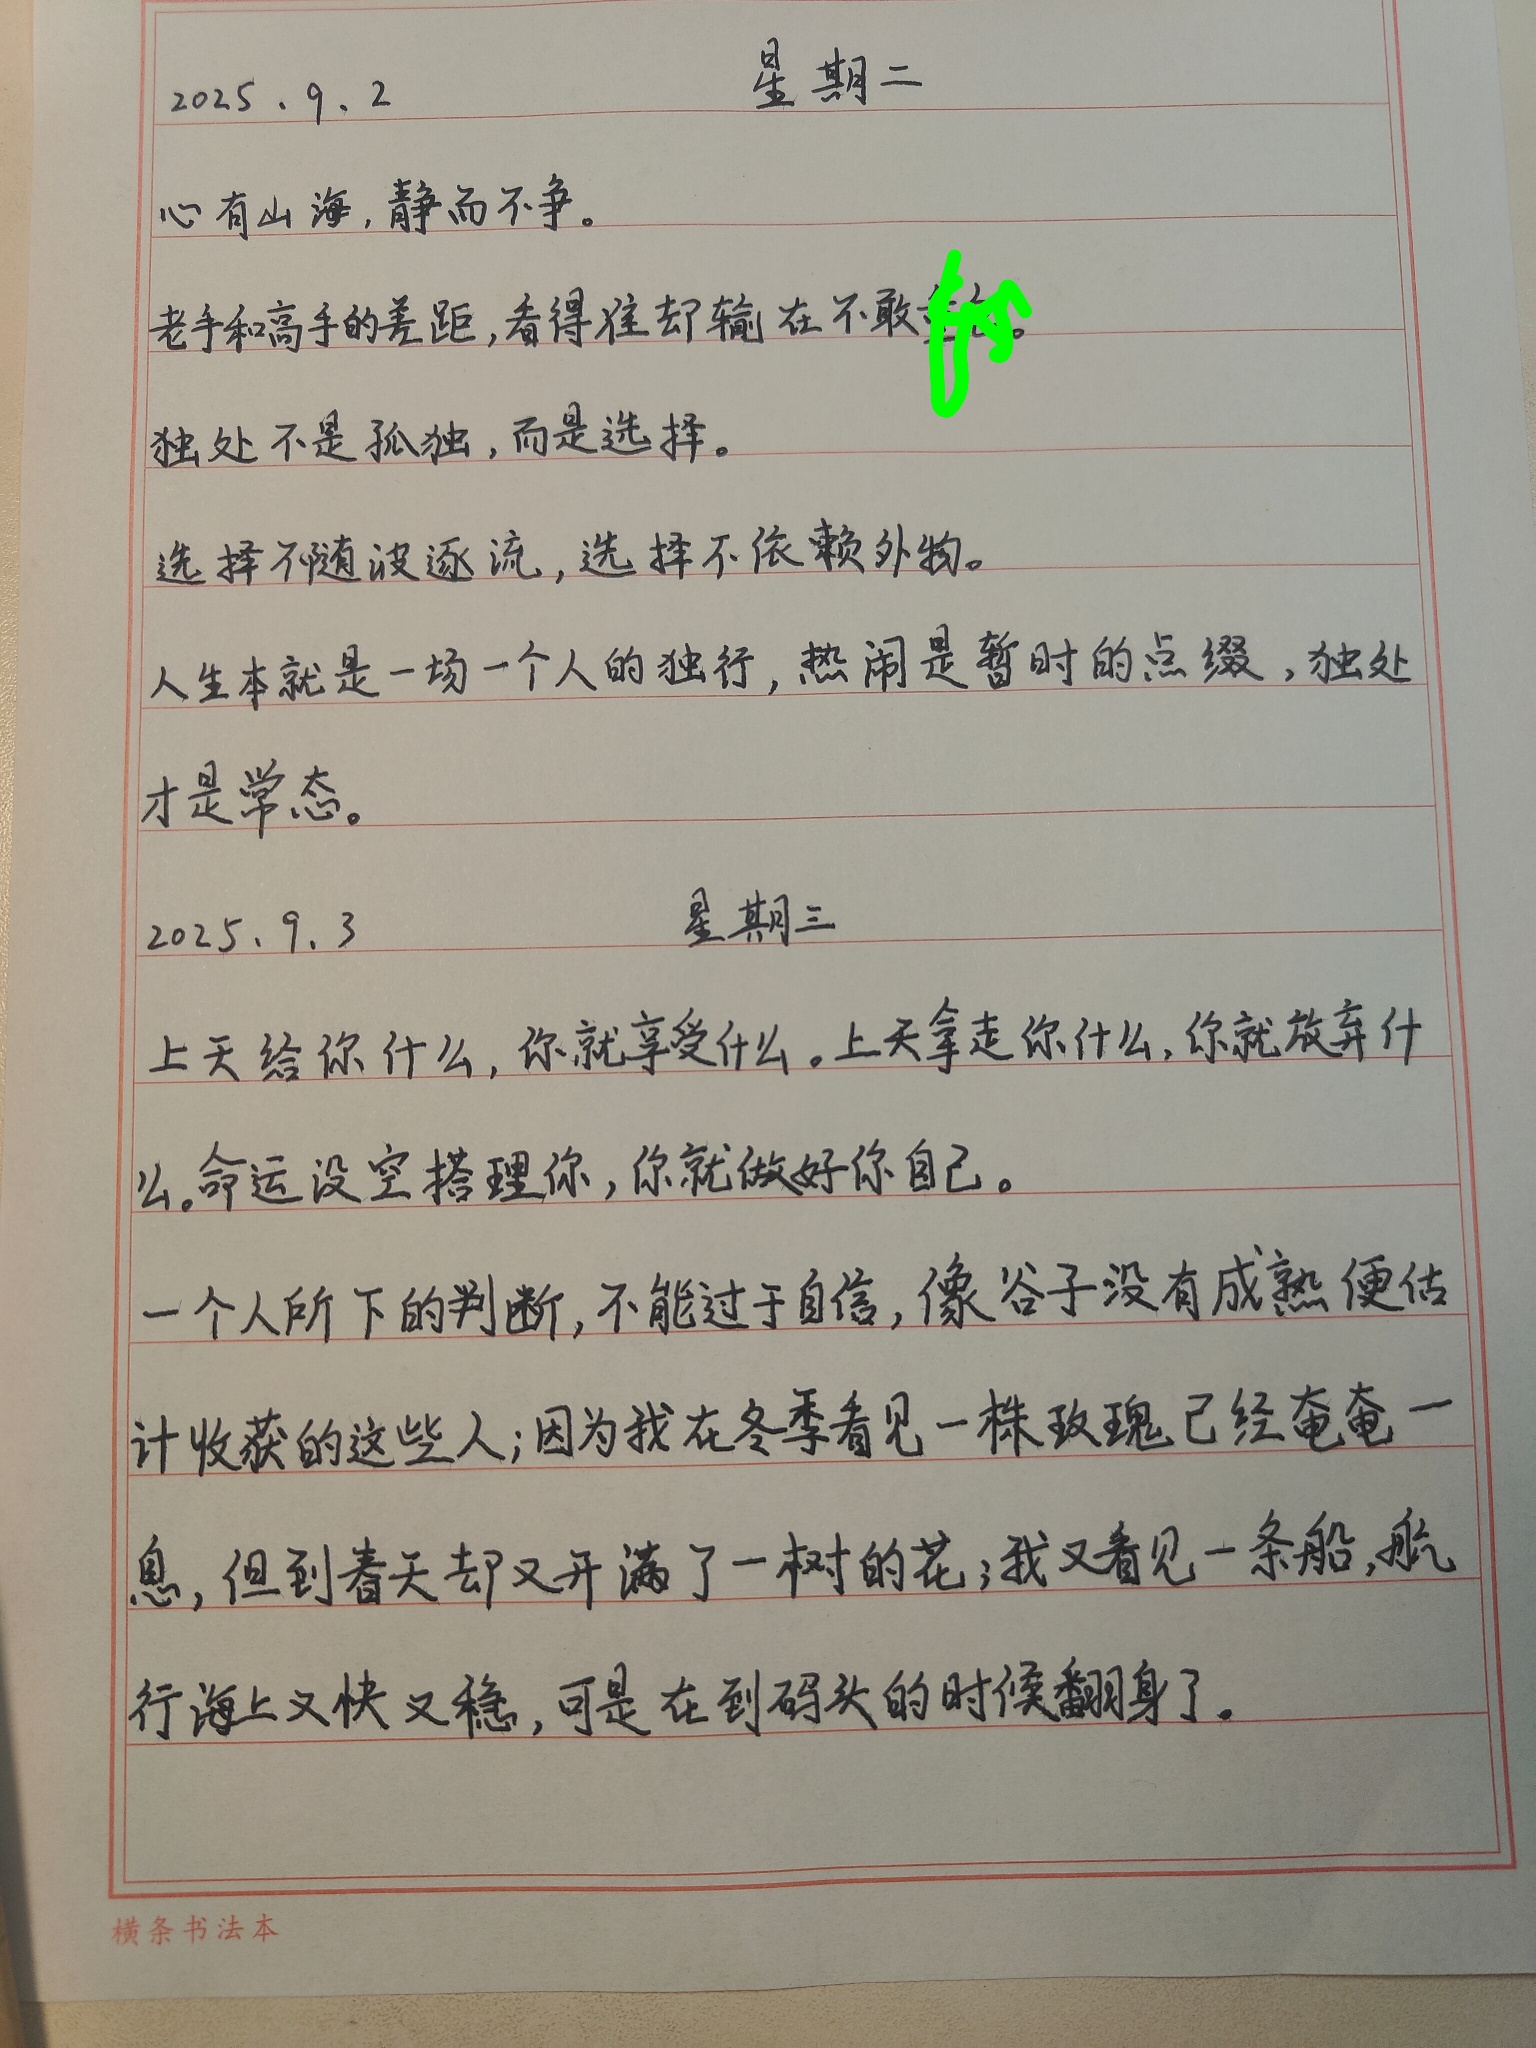 2025.9.2 星期二
心有山海,静而不争。
老手和高手的差距,看得准却输在不敢。
独处不是孤独,而是选择。
选择不随波逐流,选择不依赖外物。
人生本就是一场一个人的独行,热闹是暂时的点缀,独处
才是常态。
2025.9.3 星期三
上天给你什么,你就享受什么。上天拿走你什么,你就放弃什
么。命运没空搭理你,你就做好你自己。
一个人所下的判断,不能过于自信,像谷子没有成熟便估
计收获的这些人;因为我在冬季看见一株玫瑰已经奄奄一
息,但到春天却又开满了一树的花;我又看见一条船,航
行海上又快又稳,可是在到码头的时候翻身了。
横条书法本